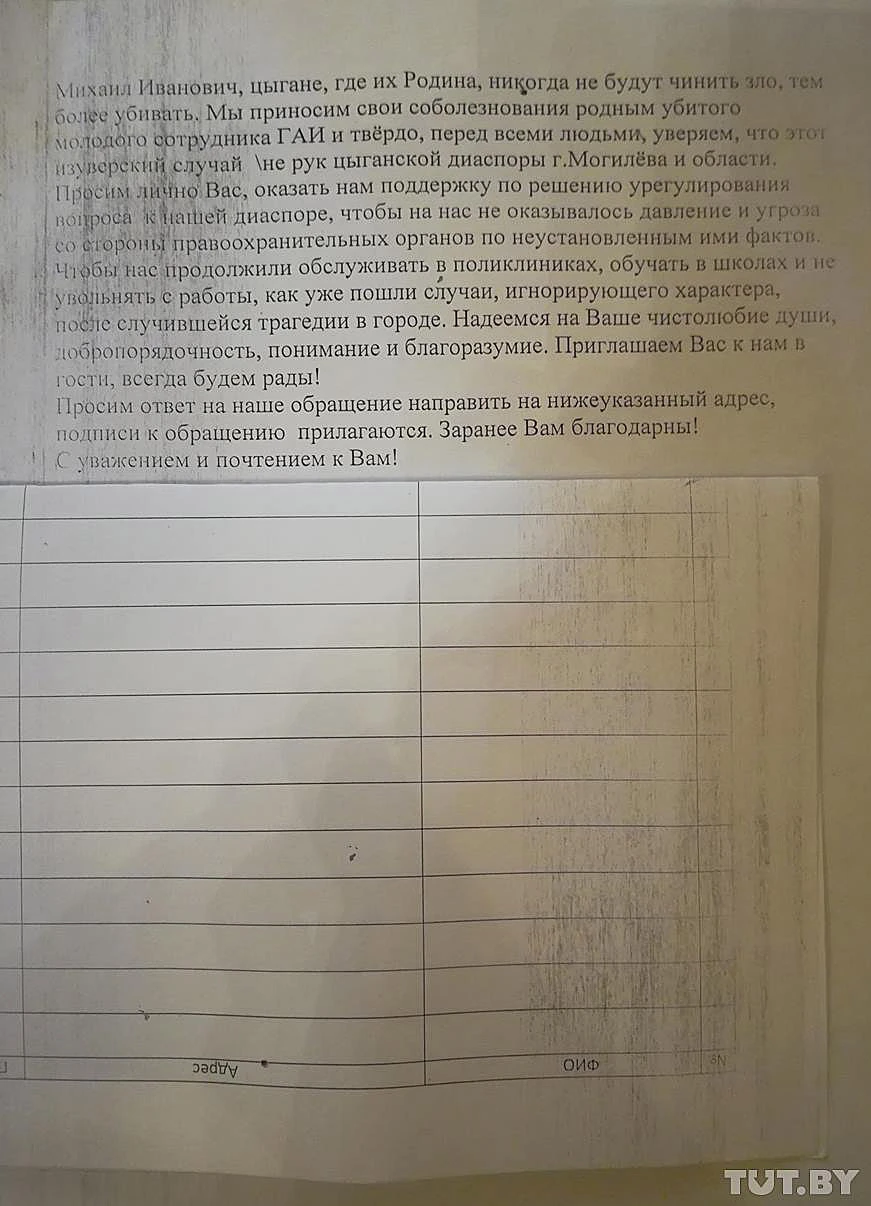 Михаил Иванович, цыгане, где их Родина, никогда не будут чинить зло, тем
более убивать. Мы приносим свои соболезнования родным убитого
молодого сотрудника ГАИ и твёрдо, перед всеми людьми, уверяем, что этот
изуверский случай \не рук цыганской диаспоры г.Могилёва и области.
Просим лично Вас, оказать нам поддержку по решению урегулирования
вопроса к нашей диаспоре, чтобы на нас не оказывалось давление и угроза
со стороны правоохранительных органов по неустановленным ими фактов.
Чтобы нас продолжили обслуживать в поликлиниках, обучать в школах и не
увольнять с работы, как уже пошли случаи, игнорирующего характера,
после случившейся трагедии в городе. Надеемся на Ваше чистолюбие души,
добропорядочность, понимание и благоразумие. Приглашаем Вас к нам в
гости, всегда будем рады!
Просим ответ на наше обращение направить на нижеуказанный адрес,
подписи к обращению прилагаются. Заранее Вам благодарны!
С уважением и почтением к Вам!
№ ФИО Адрес
TUT.BY